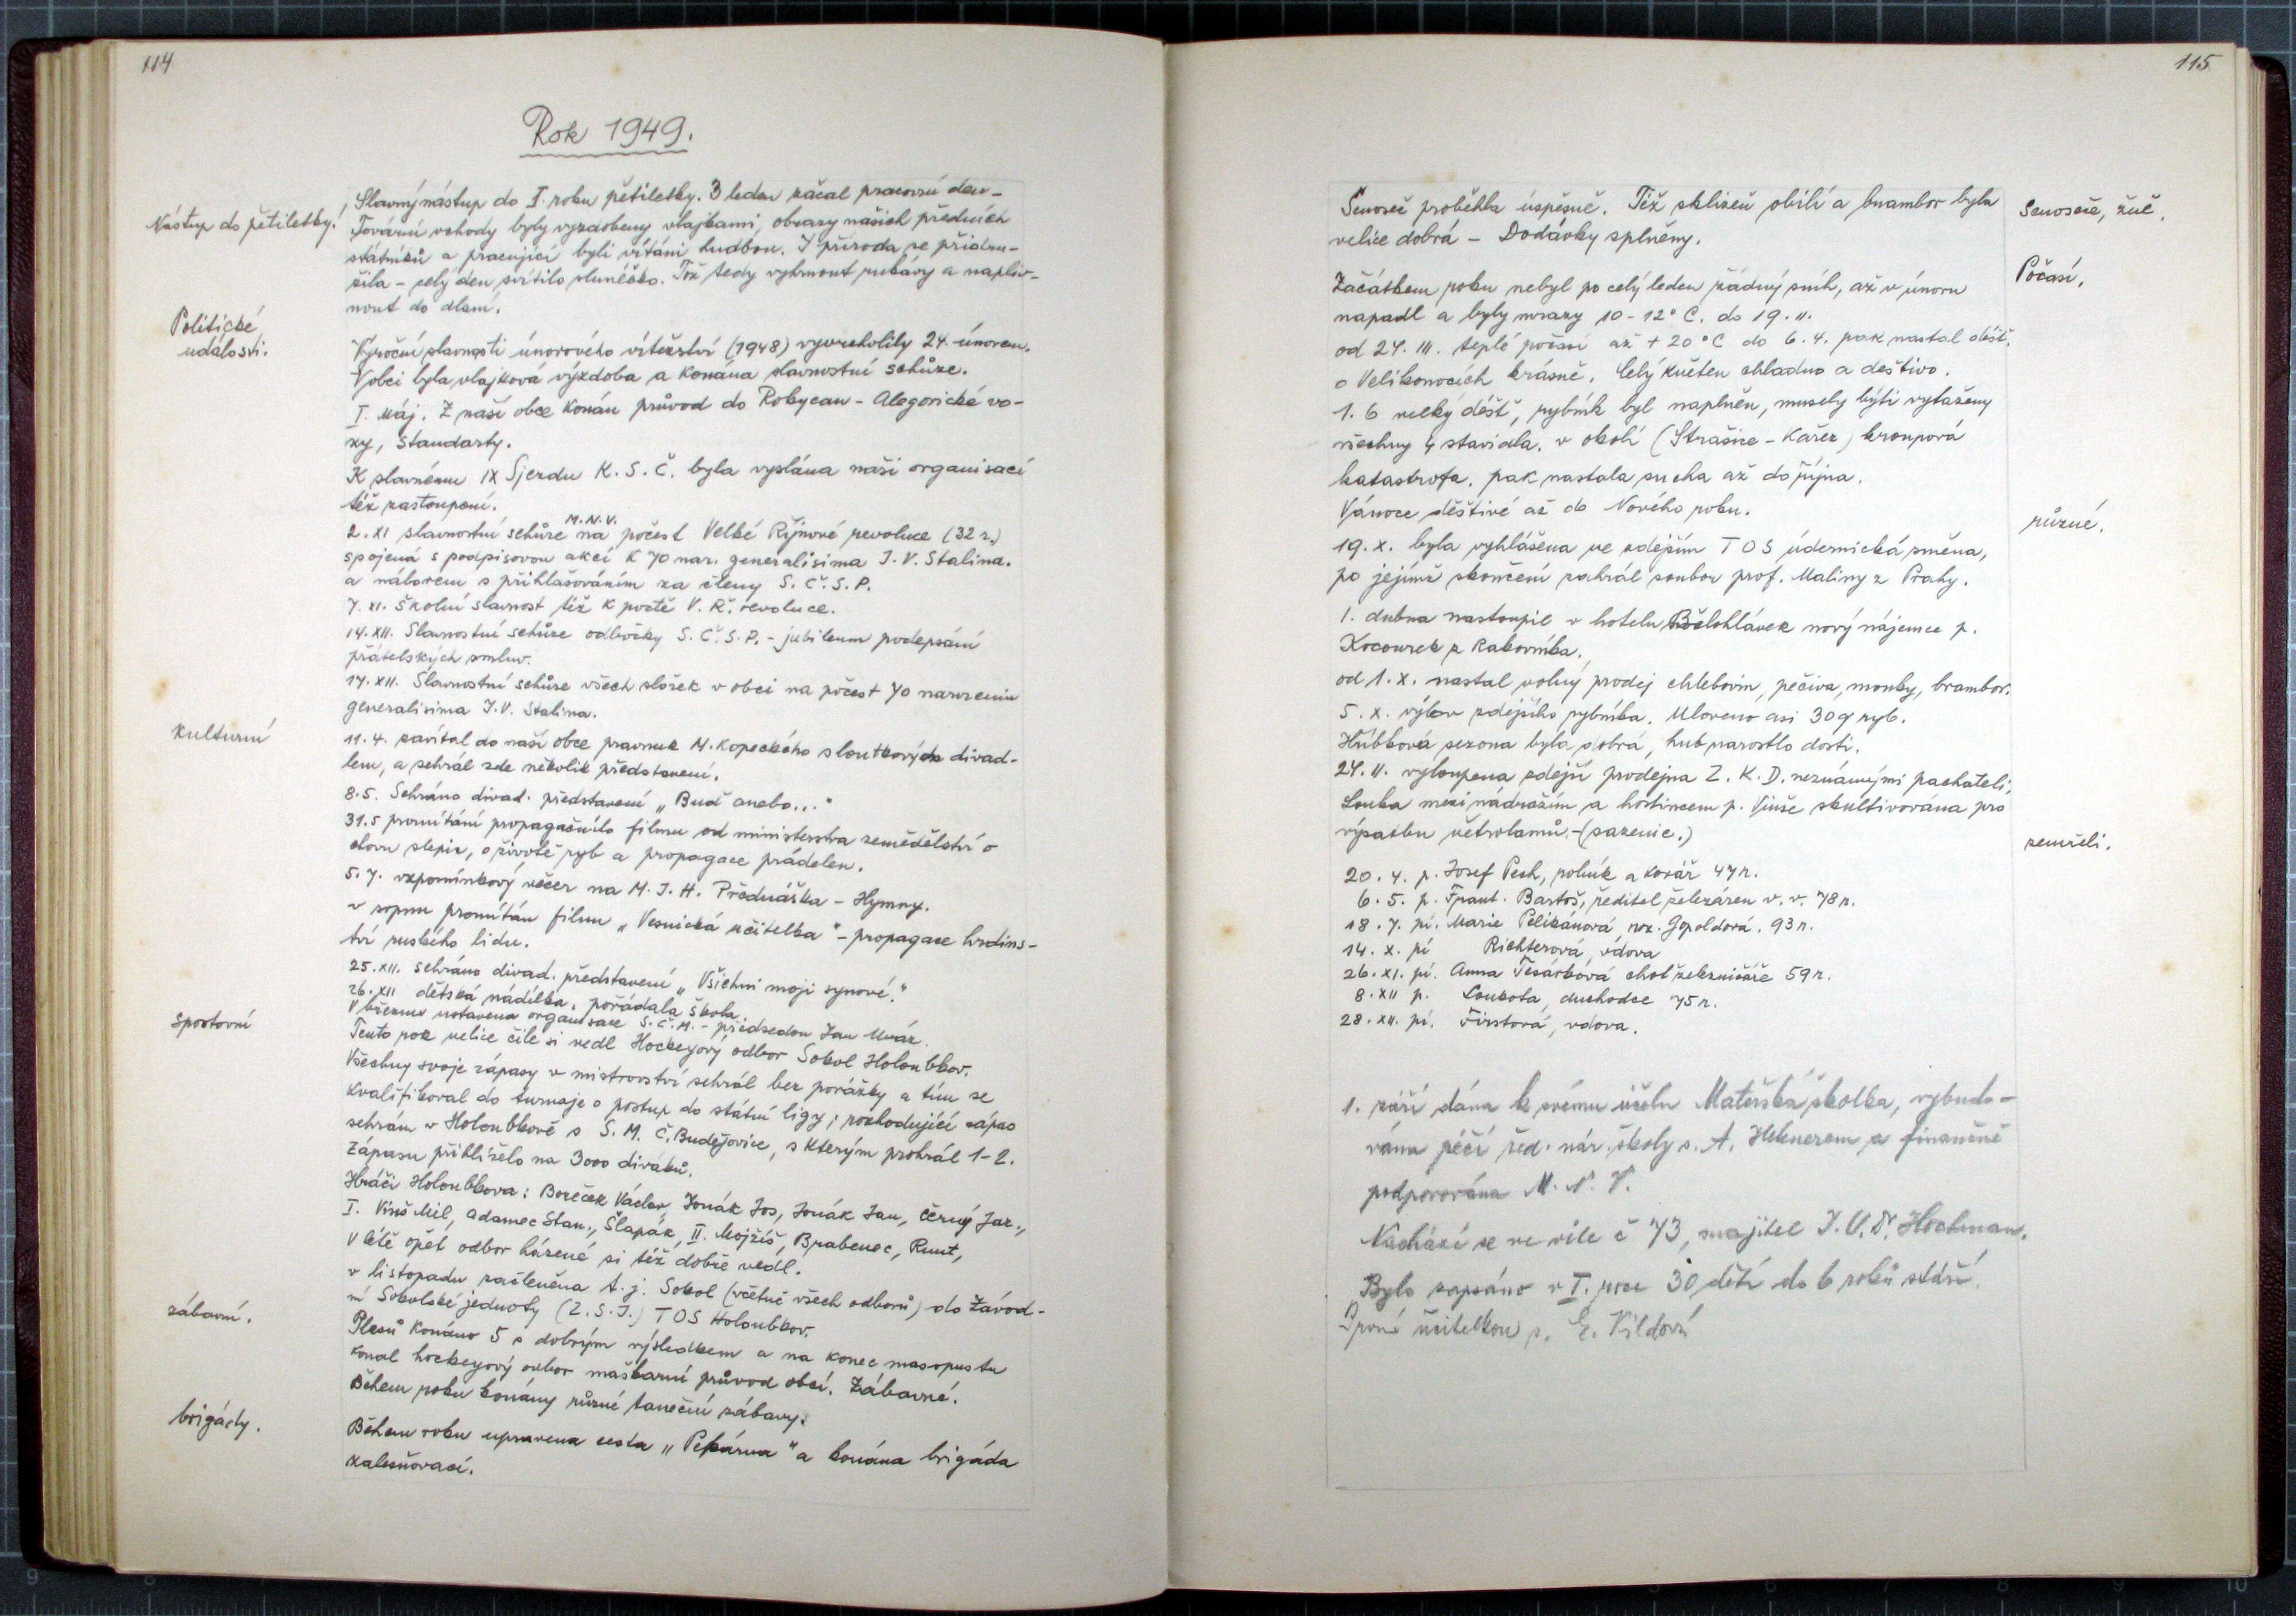 114
Rok 1949.
Nástup do pětiletky!
Slavný nástup do I. roku pětiletky. 3 leden začal pracovní den –
Tovární vchody byly vyzdobeny vlajkami, obrazy našich předních
státníků a pracující byli vítáni hudbou. I příroda se přidru-
žila – celý den svítilo sluníčko. Tož tedy vyhrnout rukávy a napliv-
nout do dlaní.
Politické
události.
Výroční slavnosti únorového vítězství (1948) vyvrcholily 24. únorem.
V obci byla vlajková výzdoba a konána slavnostní schůze.
I. Máj. Z naší obce konán průvod do Rokycan – Alegorické vo-
zy, standarty.
K slavnému IX Sjezdu K. S. Č. byla vyslána naší organisací
též zastoupení.
M.N.V.
2. XI slavnostní schůze na počest Velké Říjnové revoluce (32 r.)
spojená s podpisovou akcí k 70 nar. generalisima J. V. Stalina.
a náborem s přihlašováním za členy S. Č. S. P.
7. XI. školní slavnost též k poctě V. Ř. revoluce.
14. XII. Slavnostní schůze odbočky S. Č. S. P. – jubileum podepsání
přátelských smluv.
17. XII. Slavnostní schůze všech složek v obci na počest 70 narozenin
generalisima J. V. Stalina.
Kulturní
11. 4. zavítal do naší obce pravnuk M. Kopeckého s loutkovým divad-
lem, a sehrál zde několik představení.
8. 5. Sehráno divad. představení „Buď anebo..."
31. 5 promítání propagačního filmu od ministerstva zemědělství o
chovu slepic, o životě ryb a propagace prádelen.
5. 7. vzpomínkový večer na M. J. H. Přednáška – Hymny.
v srpnu promítán filmu „Vesnická učitelka" – propagace hrdins-
tví ruského lidu.
25. XII. sehráno divad. představení „Všichni moji synové."
26. XII dětská nádílka, pořádala škola.
V březnu ustavena organisace S. Č. M. – předsedou Jan Mráz.
sportovní
Tento rok velice čile si vedl Hockeyový odbor Sokol Holoubkov.
Všechny svoje zápasy v mistrovství sehrál bez porážky a tím se
kvalifikoval do turnaje o postup do státní ligy; rozhodující zápas
sehrán v Holoubkově s S. M. Č. Budějovice, s kterým prohrál 1–2.
Zápasu přihlíželo na 3000 diváků.
Hráči Holoubkova: Boreček Václav, Jonák Jos, Jonák Jan, Černý Jar.,
I. Vinš Mil, Adamec Stan., Šlapák, II. Mojžíš, Brabenec, Runt,
V létě opět odbor házené si též dobře vedl.
v listopadu začleněna t. j. Sokol (včetně všech odborů) do Závod-
ní Sokolské jednoty (Z. S. J.) TOS Holoubkov.
zábavní.
Plesů konáno 5 s dobrým výsledkem a na konec masopustu
konal hockeyový odbor maškarní průvod obcí. Zábavné.
Během roku konány různé taneční zábavy.
brigády.
Během roku upravena cesta „Pekárna" a konána brigáda
zalesňovací.
115
Senoseč proběhla úspěšně. Též sklizeň obilí a brambor byla
velice dobrá – Dodávky splněny.
Senoseče, žně.
Začátkem roku nebyl po celý leden žádný sníh, až v únoru
napadl a byly mrazy 10 – 12° C. do 19. II.
od 24. III. teplé počasí až + 20° C do 6. 4. pak nastal déšť.
o Velikonocích krásně. Celý květen chladno a deštivo.
1. 6 velký déšť, rybník byl naplněn, musely býti vytaženy
všechny 4 stavidla. v okolí (Strašice – Kařez) kroupová
katastrofa. pak nastala sucha až do října.
Vánoce deštivé až do Nového roku.
Počasí.
různé.
19. X. byla vyhlášena ve zdejším TOS údernická směna,
po jejímž skončení zahrál soubor prof. Maliny z Prahy.
1. dubna nastoupil v hotelu Bělohlávek nový nájemce p.
Kocourek z Rakovníka.
od 1. X. nastal volný prodej chlebovin, pečiva, mouky, brambor.
5. X. výlov zdejšího rybníka. Uloveno asi 30 q ryb.
Hubková sezona byla dobrá, hub narostlo dosti.
24. 11. vyloupena zdejší prodejna Z. K. D. neznámými pachateli,
Louka mezi nádražím a hostincem p. Vinše skultivována pro
výsadbu větrolamů – (sazenic.)
zemřeli.
20. 4. p. Josef Pech, rolník a kovář 47 r.
6. 5. p. Frant. Bartoš, ředitel železáren v. v. 78 r.
18. 7. pí. Marie Pelikánová, roz. Gpoldová. 93 r.
14. X. pí Richterová, vdova
26. XI. pí. Anna Tesárková choť železničáře 59 r.
8. XII p. Loukota, duchodce 75 r.
28. XII. pí. Firstová, vdova.
1. září dána k svému účelu Mateřská školka, vybudo-
vána péčí řed. nár. školy s. A. Heknerem a finančně
podporována M. N. V.
Nachází se ve vile č 73, majitel J. U. Dr. Hochman.
Bylo zapsáno v I. roce 30 dětí do 6 roků stáří.
První učitelkou s. E. Vildová